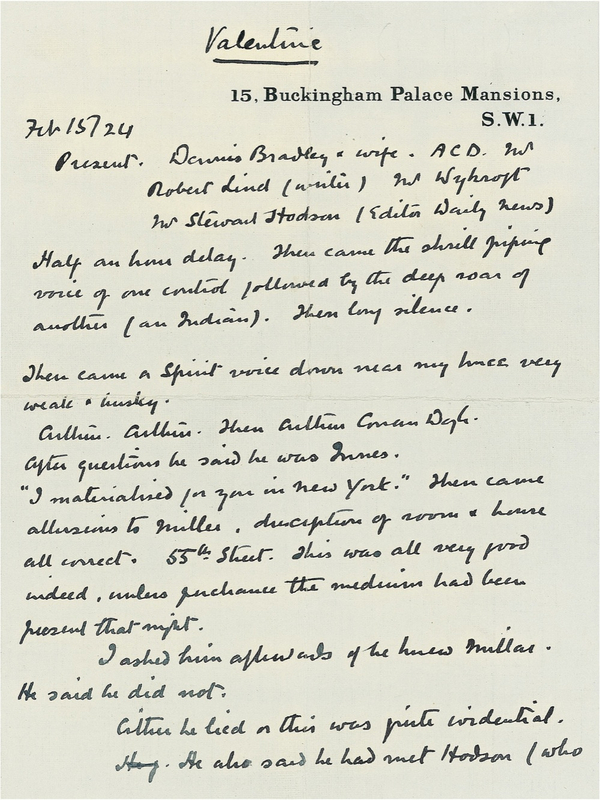 Valentine
15, Buckingham Palace Mansions,
S.W.1.
Feb 15/24
Present. Dennis Bradley & wife. ACD. Mr
Robert Lind (writer) Mr Wykroft
Mr Stewart Hodson (Editor Daily News)
Half an hour delay. Then came the shrill piping
voice of one control followed by the deep roar of
another (an Indian). Then long silence.
Then came a Spirit voice down near my knees very
weak & husky.
Arthur. Arthur. Then Arthur Conan Doyle.
After questions he said he was Innes.
"I materialised for you in New York." Then came
allusions to Miller, description of room & house
all correct. 55th Street. This was all very good
indeed, unless perchance the medium had been
present that night.
I asked him afterwards if he knew Millar.
He said he did not.
Either he lied or this was quite evidential.
He also said he had met Hodson (who